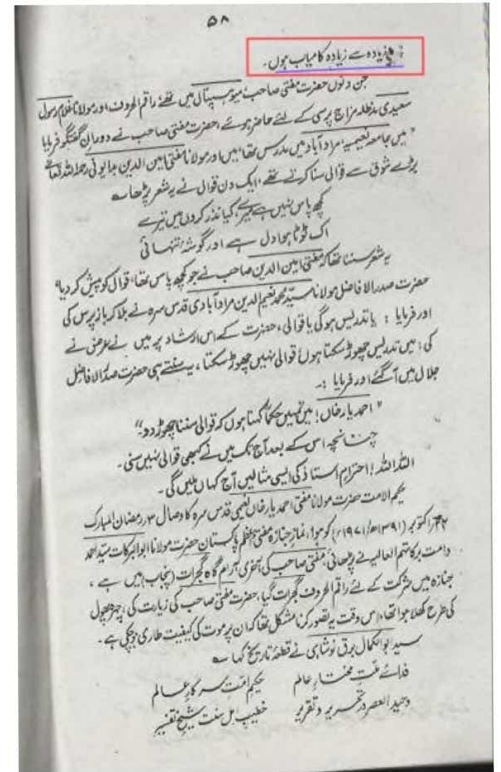 ۵۸
زیادہ سے زیادہ کامیاب ہوں۔
جن دنوں حضرت مفتی صاحب میو ہسپتال میں تھے، راقم الحروف اور مولانا غلام رسول
سعیدی مدظلہ مزاج پرسی کے لئے حاضر ہوئے، حضرت مفتی صاحب نے دوران گفتگو فرمایا
"میں جامعہ نعیمیہ مراد آباد میں مدرس تھا، میں اور مولانا مفتی امین الدین بدایونی رحمۃ اللہ تعالیٰ
بڑے شوق سے قوالی سنا کرتے تھے، ایک دن قوالی نے یہ شعر پڑھا ؎
کچھ پاس نہیں ہے میرے، کیا نذر کروں میں تیرے
اک ٹوٹا ہوا دل ہے اور گوشۂ تنہائی
یہ شعر سننا تھا کہ مفتی امین الدین صاحب نے جو کچھ پاس تھا، قوالی کو پیش کر دیا"
حضرت صدر الافاضل مولانا سید محمد نعیم الدین مراد آبادی قدس سرہ نے بلا کر باز پرس کی
اور فرمایا : یا تدریس ہوگی یا قوالی، حضرت کے اس ارشاد پر میں نے عرض نے
کی : میں تدریس چھوڑ سکتا ہوں قوالی نہیں چھوڑ سکتا، یہ سنتے ہی حضرت صدر الافاضل
جلال میں آگئے اور فرمایا :۔
"احمد یار خاں! میں تمہیں حکماً کہتا ہوں کہ قوالی سننا چھوڑ دو۔"
چنانچہ اس کے بعد آج تک میں نے کبھی قوالی نہیں سنی۔
اللہ اللہ! احترام استاذ کی ایسی مثالیں آج کہاں ملیں گی۔
حکیم الامت حضرت مولانا مفتی احمد یار خاں نعیمی قدس سرہ کا وصال ۳ رمضان المبارک
۲۴ اکتوبر (۱۳۹۱ھ/۱۹۷۱ء) کو ہوا، نماز جنازہ مفتی اعظم پاکستان حضرت مولانا ابو البرکات سید احمد
دامت برکاتہم العالیہ نے پڑھائی، مفتی صاحب کی آخری آرام گاہ گجرات (پنجاب) میں ہے،
جنازہ میں شرکت کے لئے راقم الحروف گجرات گیا، حضرت مفتی صاحب کی زیارت کی، چہرہ پھول
کی طرح کھلا ہوا تھا، اس وقت یہ تصور کرنا مشکل تھا کہ ان پر موت کی کیفیت طاری ہو چکی ہے۔
سید ابو الکمال برق نوشاہی نے قطعۂ تاریخ کہا ؎
فدائے ملت مختار عالم حکیم امت سرکار عالم
وحید العصر در تحریر و تقریر خطیب اہل سنت شیخ تفسیر